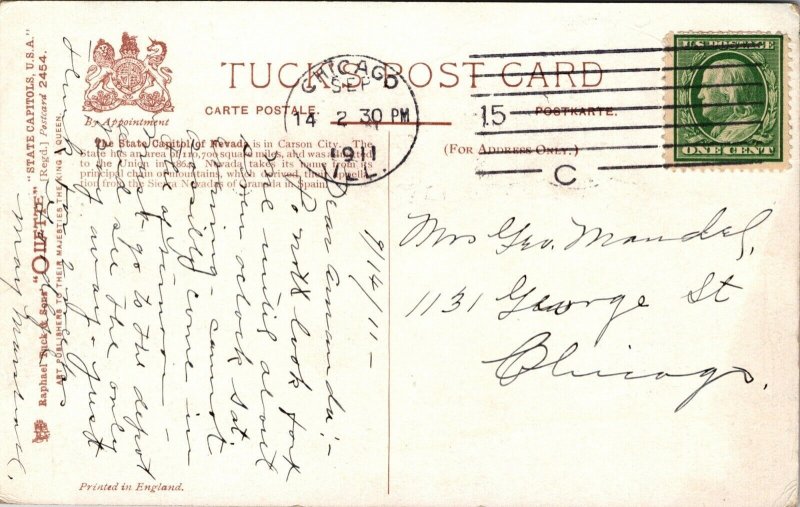 TUCK'S POST CARD
By Appointment
CARTE POSTALE.
POSTKARTE.
(FOR ADDRESS ONLY.)
CHICAGO
SEP
14 2 30 PM
1911
ILL.
15
C
U.S. POSTAGE
ONE CENT
The State Capitol of Nevada is in Carson City. The
State has an area of 110,700 square miles, and was admitted
to the Union in 1864. Nevada takes its name from its
principal chain of mountains, which derived their appella-
tion from the Sierra Nevadas of Granada in Spain.
9/14/11 -
Dear Amanda: -
Do not look for
me until about
seven o'clock Sat.
evening - cannot
possibly come in
the afternoon -
must go to the depot
and see the only
away - just
Mary Marshall,
Mrs Geo. Mandel,
1131 George St
Chicago.
Raphael Tuck & Sons' "OILETTE" "STATE CAPITOLS, U.S.A."
[Regd.] Postcard 2454.
ART PUBLISHERS TO THEIR MAJESTIES THE KING & QUEEN.
Printed in England.